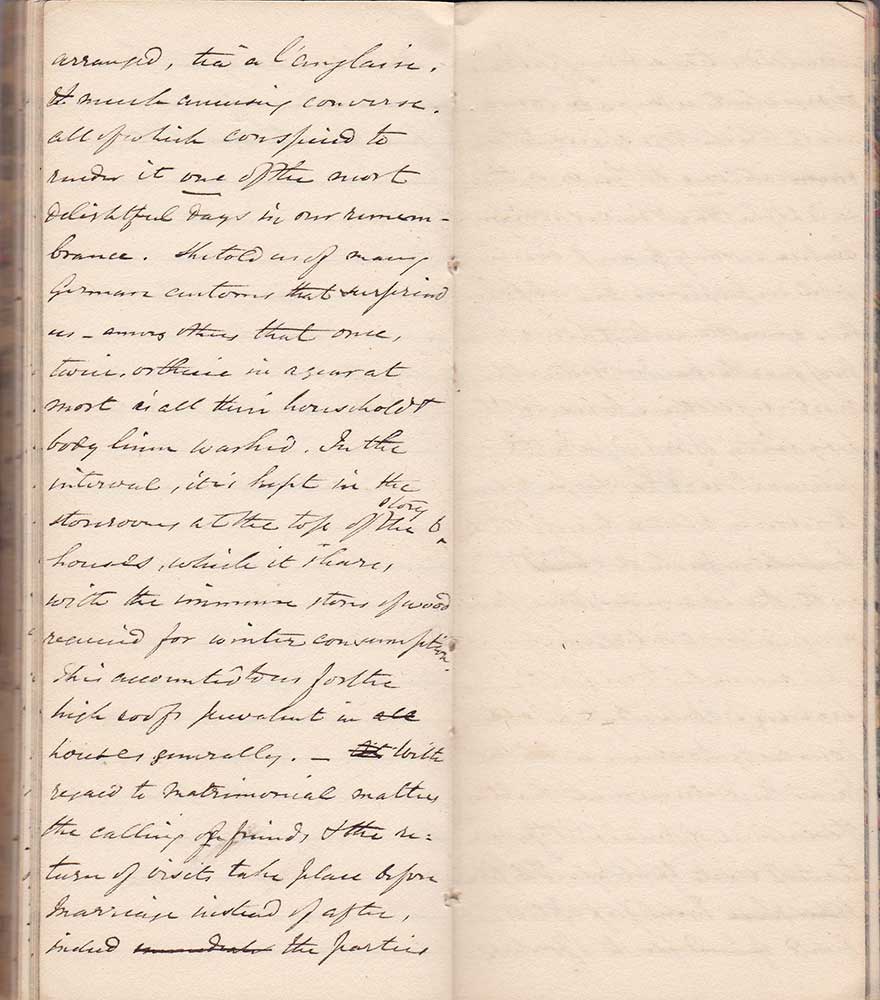 arranged, tea a l'anglaise.
& much amusing converse.
all of which conspired to
render it one of the most
delightful days in our remem-
brance. She told us of many
German customs that surprised
us - among others that once,
twice, or thrice in a year at
most is all their household &
body linen washed. In the
interval, it is kept in the
storerooms at the top of the
story
houses, which it shares
with the immense stores of wood
required for winter consumption.
This accounted to us for the
high roofs prevalent in all
houses generally. - With
regard to Matrimonial matters
the calling of friends & the re=
turn of visits take place before
Marriage instead of after,
indeed the parties